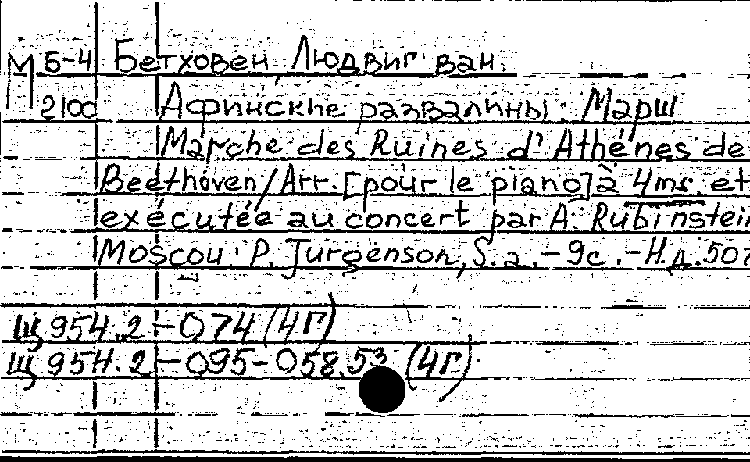 М Б-4 Бетховен, Людвиг ван.
2100 Афинские развалины: Марш
Marche des Ruines d'Athénes de
Beethoven/Arr. [pour le piano] à 4ms. et
exécutée au concert par A. Rubinstein
Moscou: P. Jurgenson, S. a. - 9с. - Н.д.
Щ 954.2-074 (4Г)
Щ 954.2-095-058.53 (4Г)